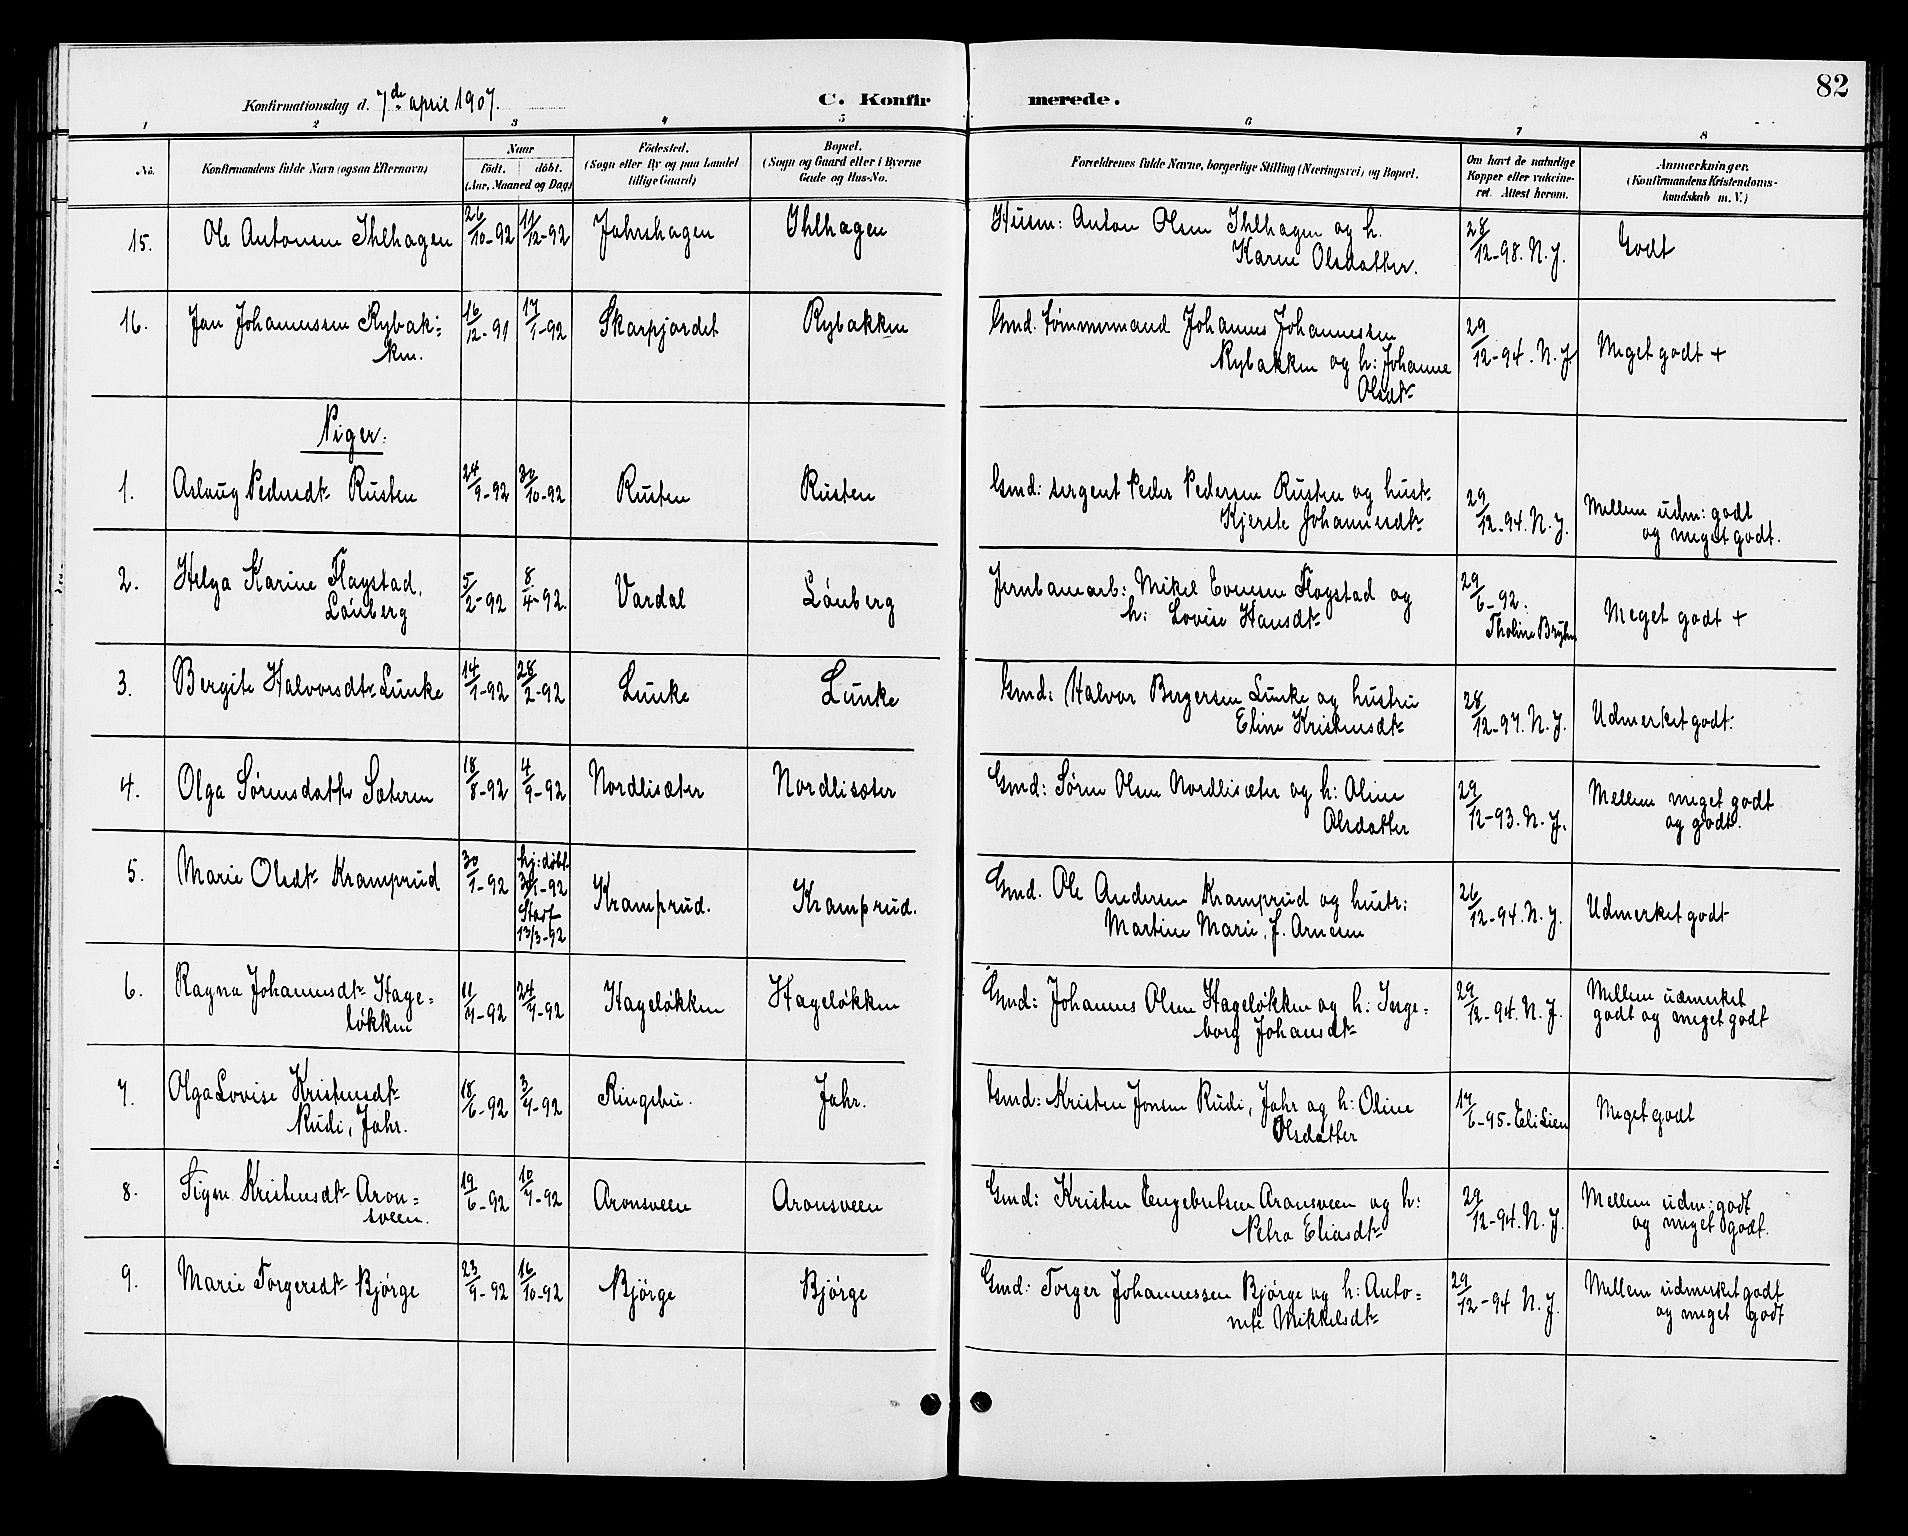 82
Konfirmationsdag d. 7de april 1907.
C. Konfirmerede.
1 2 3 4 5 6 7 8
No.
Konfirmandens fulde Navn (ogsaa Efternavn)
Naar
født. døbt.
(Aar, Maaned og Dag)
Fødested.
(Sogn eller By og paa Landet
tillige Gaard)
Bopæl.
(Sogn og Gaard eller i Byerne
Gade og Hus-No.
Forældrenes fulde Navne, borgerlige Stilling (Næringsvei) og Bopæl.
Om havt de naturlige
Kopper eller vakcine-
ret. Attest herom.
Anmærkninger.
(Konfirmandens Kristendoms-
kundskab m. V.)
15. Ole Antonsen Ihlhagen 26/10-92 11/12-92 Jahrshagen Ihlhagen Husm: Anton Olsen Ihlhagen og h.
Karen Olsdatter. 28/12-98. N. J. Godt
16. Jan Johannessen Rybak=
ken. 16/12-91 17/1-92 Skarpjordet Rybakken Gmd. tømmermand Johannes Johannessen
Rybakken og h: Johanne
Olsdt 29/12-94. N. J. Meget godt +
Piger:
1. Aslaug Pedersdt Rusten 24/9-92 30/10-92 Rusten Rusten Gmd: sergent Peder Pedersen Rusten og hust
Kjerste Johannesdt 29/12-94. N. J. Mellem udm: godt
og meget godt.
2. Helga Karine Flagstad,
Lønberg 5/2-92 8/4-92. Vardal Lønberg Jernbanearb: Mikel Evensen Flagstad og
h: Lovise Hansdt 29/6-92.
Tholine Bryhn Meget godt +
3. Bergite Halvorsdt Lunke 14/1-92 28/2-92 Lunke Lunke Gmd: Halvor Bergersen Lunke og hustru
Eline Kristensdt 28/12-97. N. J. Udmerket godt.
4. Olga Sørensdatter Sæteren 18/8-92 4/9-92 Nordlisæter Nordlisæter Gmd: Søren Olsen Nordlisæter og h: Oline
Olsdatter 29/12-93. N. J. Mellem meget godt
og godt.
5. Marie Olsdt Kramprud 30/1-92 hj: døbt
30/1-92
Stadf
13/3-92 Kramprud. Kramprud. Gmd. Ole Andersen Kramprud og hustr:
Martine Marie, f. Arnesen 26/12-94. N. J. Udmerket godt
6. Ragna Johannesdt Hage=
løkken 11/4-92 24/4-92 Hageløkken Hageløkken Gmd: Johannes Olsen Hageløkken og h: Inge=
borg Johansdt 29/12-94. N. J. Mellem udmerket
godt og meget godt
7. Olga Lovise Kristensdt
Rudi, Jahr. 18/6-92 3/7-92 Ringebu. Jahr. Gmd: Kristen Jonsen Rudi, Jahr og h: Oline
Olsdatter 17/6-95. Eli Lien Meget godt
8. Signe Kristensdt Aron=
sveen. 19/6-92 10/7-92 Aronsveen Aronsveen Gmd: Kristen Engebretsen Aronsveen og h:
Petra Eliasdt 29/12-94. N. J. Mellem udm: godt
og meget godt.
9. Marie Torgersdt Bjørge 23/9-92 16/10-92 Bjørge Bjørge Gmd: Torger Johannessen Bjørge og h: Anto=
nete Mikkelsdt 29/12-94 N. J. Mellem udmerket godt
og meget godt